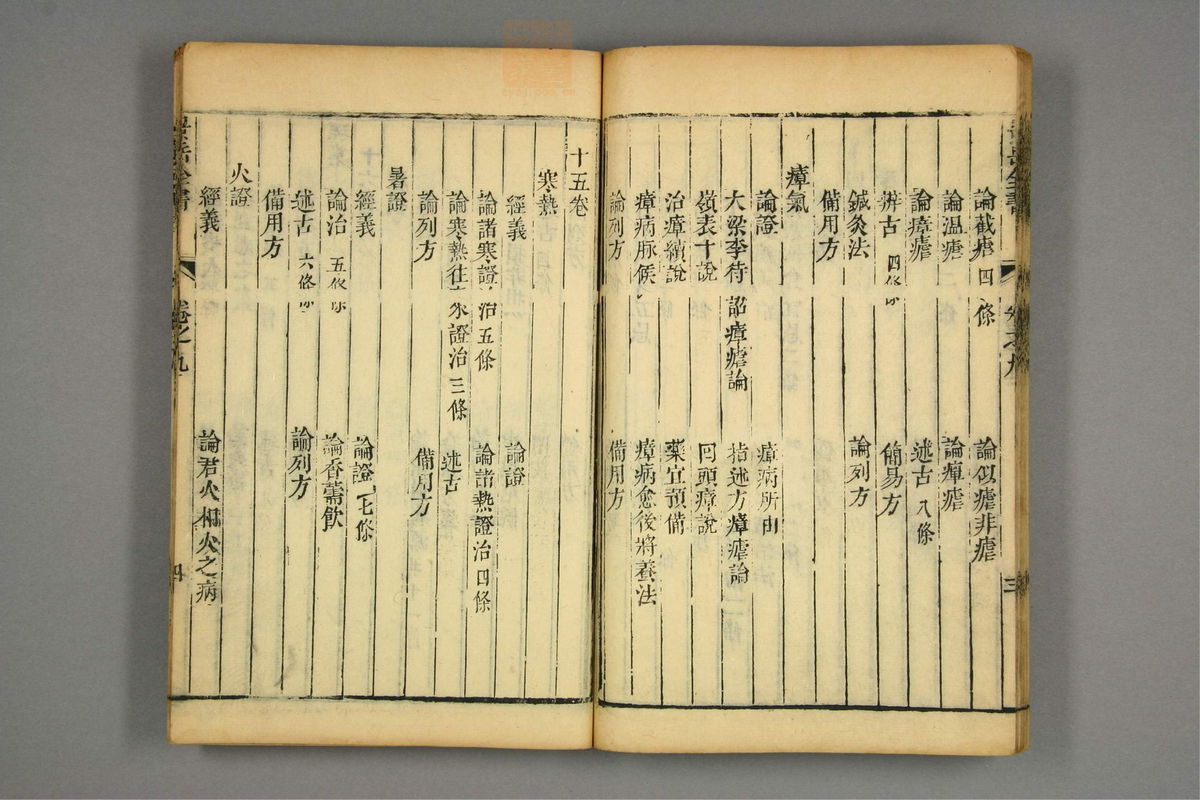 景岳全書 卷之九 三
論截瘧 四條 論似瘧非瘧
論温瘧 論癉瘧
論瘴瘧 述古 八條
辨古 四條 簡易方
鍼灸法 論列方
備用方
瘴氣
論證 瘴病所由
大梁李待詔瘴瘧論 指迷方瘴瘧論
嶺表十說 回頭瘴說
治瘴續說 藥宜預備
瘴病脉候 瘴病愈後將養法
論列方 備用方
十五卷
寒熱
經義 論證
論諸寒證治 五條 論諸熱證治 四條
論寒熱往來證治 三條 述古
論列方 備用方
暑證
經義 論證 七條
論治 五條 論香薷飲
述古 六條 論列方
備用方
火證
經義 論君火相火之病
景岳全書 卷之九 四